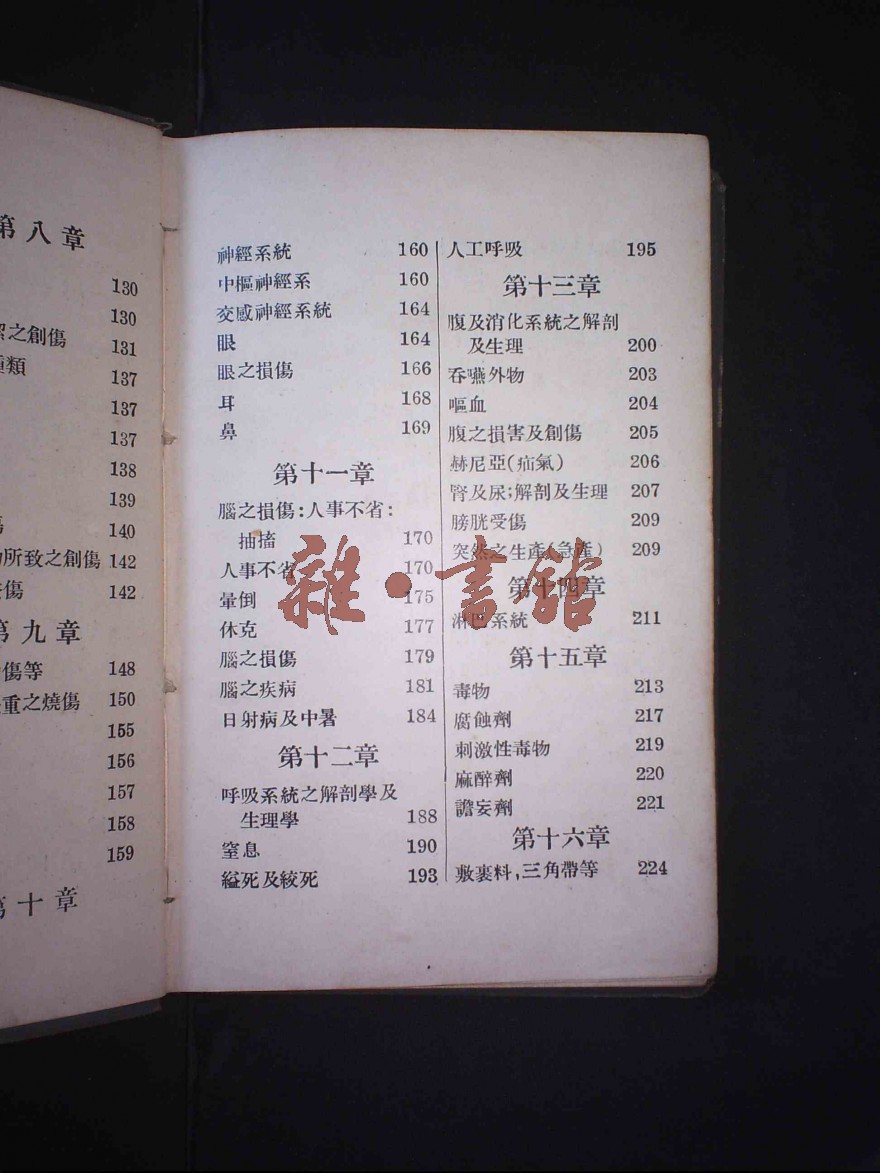 第八章
130
130
之創傷 131
類 137
137
137
138
139
140
所致之創傷 142
傷 142
第九章
傷等 148
重之燒傷 150
155
156
157
158
159
第十章
神經系統 160
中樞神經系 160
交感神經系統 164
眼 164
眼之損傷 166
耳 168
鼻 169
第十一章
腦之損傷:人事不省:
抽搐 170
人事不省 170
暈倒 175
休克 177
腦之損傷 179
腦之疾病 181
日射病及中暑 184
第十二章
呼吸系統之解剖學及
生理學 188
窒息 190
縊死及絞死 193
人工呼吸 195
第十三章
腹及消化系統之解剖
及生理 200
吞嚥外物 203
嘔血 204
腹之損害及創傷 205
赫尼亞(疝氣) 206
腎及尿;解剖及生理 207
膀胱受傷 209
突然之生產(急產) 209
第十四章
淋巴系統 211
第十五章
毒物 213
腐蝕劑 217
刺激性毒物 219
麻醉劑 220
譫妄劑 221
第十六章
敷裹料,三角帶等 224
雜·書館